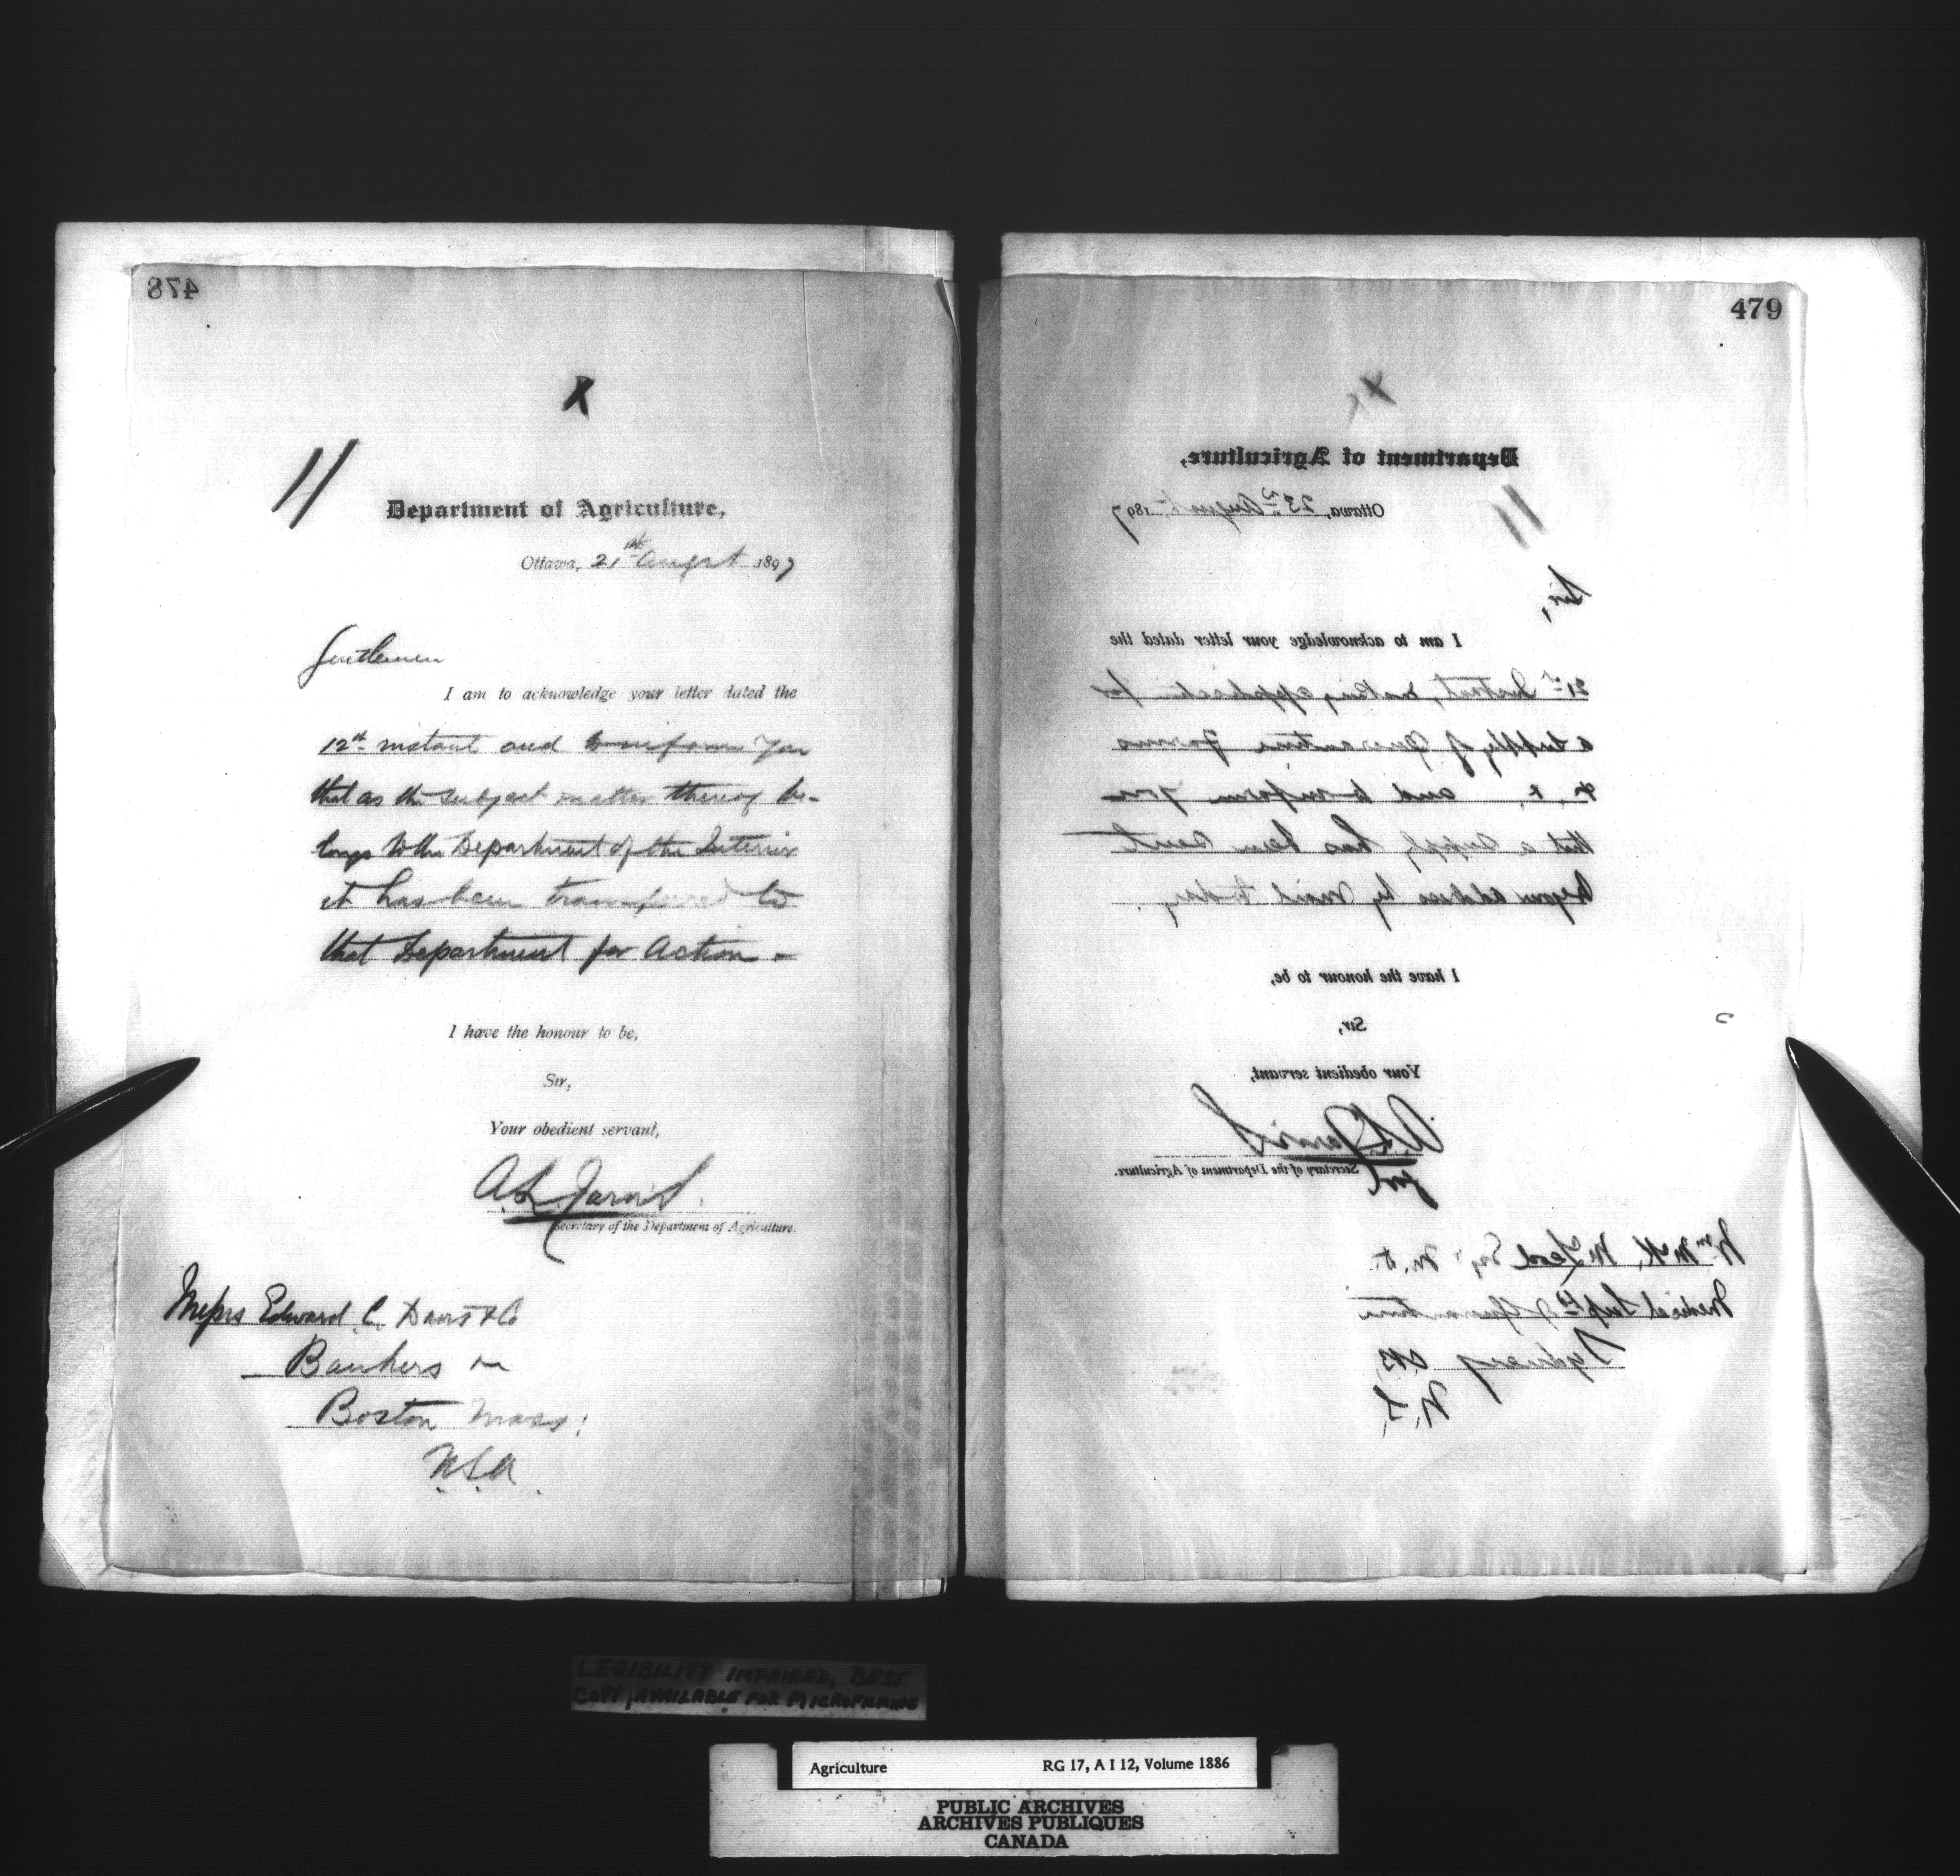 478
X
11
Department of Agriculture,
Ottawa, 21st August 1897
Gentlemen
I am to acknowledge your letter dated the
12th instant and to inform you
that as the subject matter thereof be-
longs to the Department of the Interior
it has been transferred to
that Department for action -
I have the honour to be,
Sir,
Your obedient servant,
A. L. Jarvis.
Secretary of the Department of Agriculture.
Messrs Edward C. Davis & Co
Bankers
Boston Mass:
U.S.A.
479
X
Department of Agriculture,
11
Ottawa, 23rd August 1897
Sir,
I am to acknowledge your letter dated the
21st Instant, making application for
a supply of Quarantine Forms
&. &. and to inform you
that a supply has been sent
to your address by Mail to day.
I have the honour to be,
Sir,
Your obedient servant,
A. L. Jarvis
Secretary of the Department of Agriculture.
Wm McK. McLeod Esq M.D.
Medical Supt of Quarantine
Sydney C.B.
N.S.
LEGIBILITY IMPAIRED, BEST
COPY AVAILABLE FOR MICROFILMING
Agriculture RG 17, A I 12, Volume 1886
PUBLIC ARCHIVES
ARCHIVES PUBLIQUES
CANADA